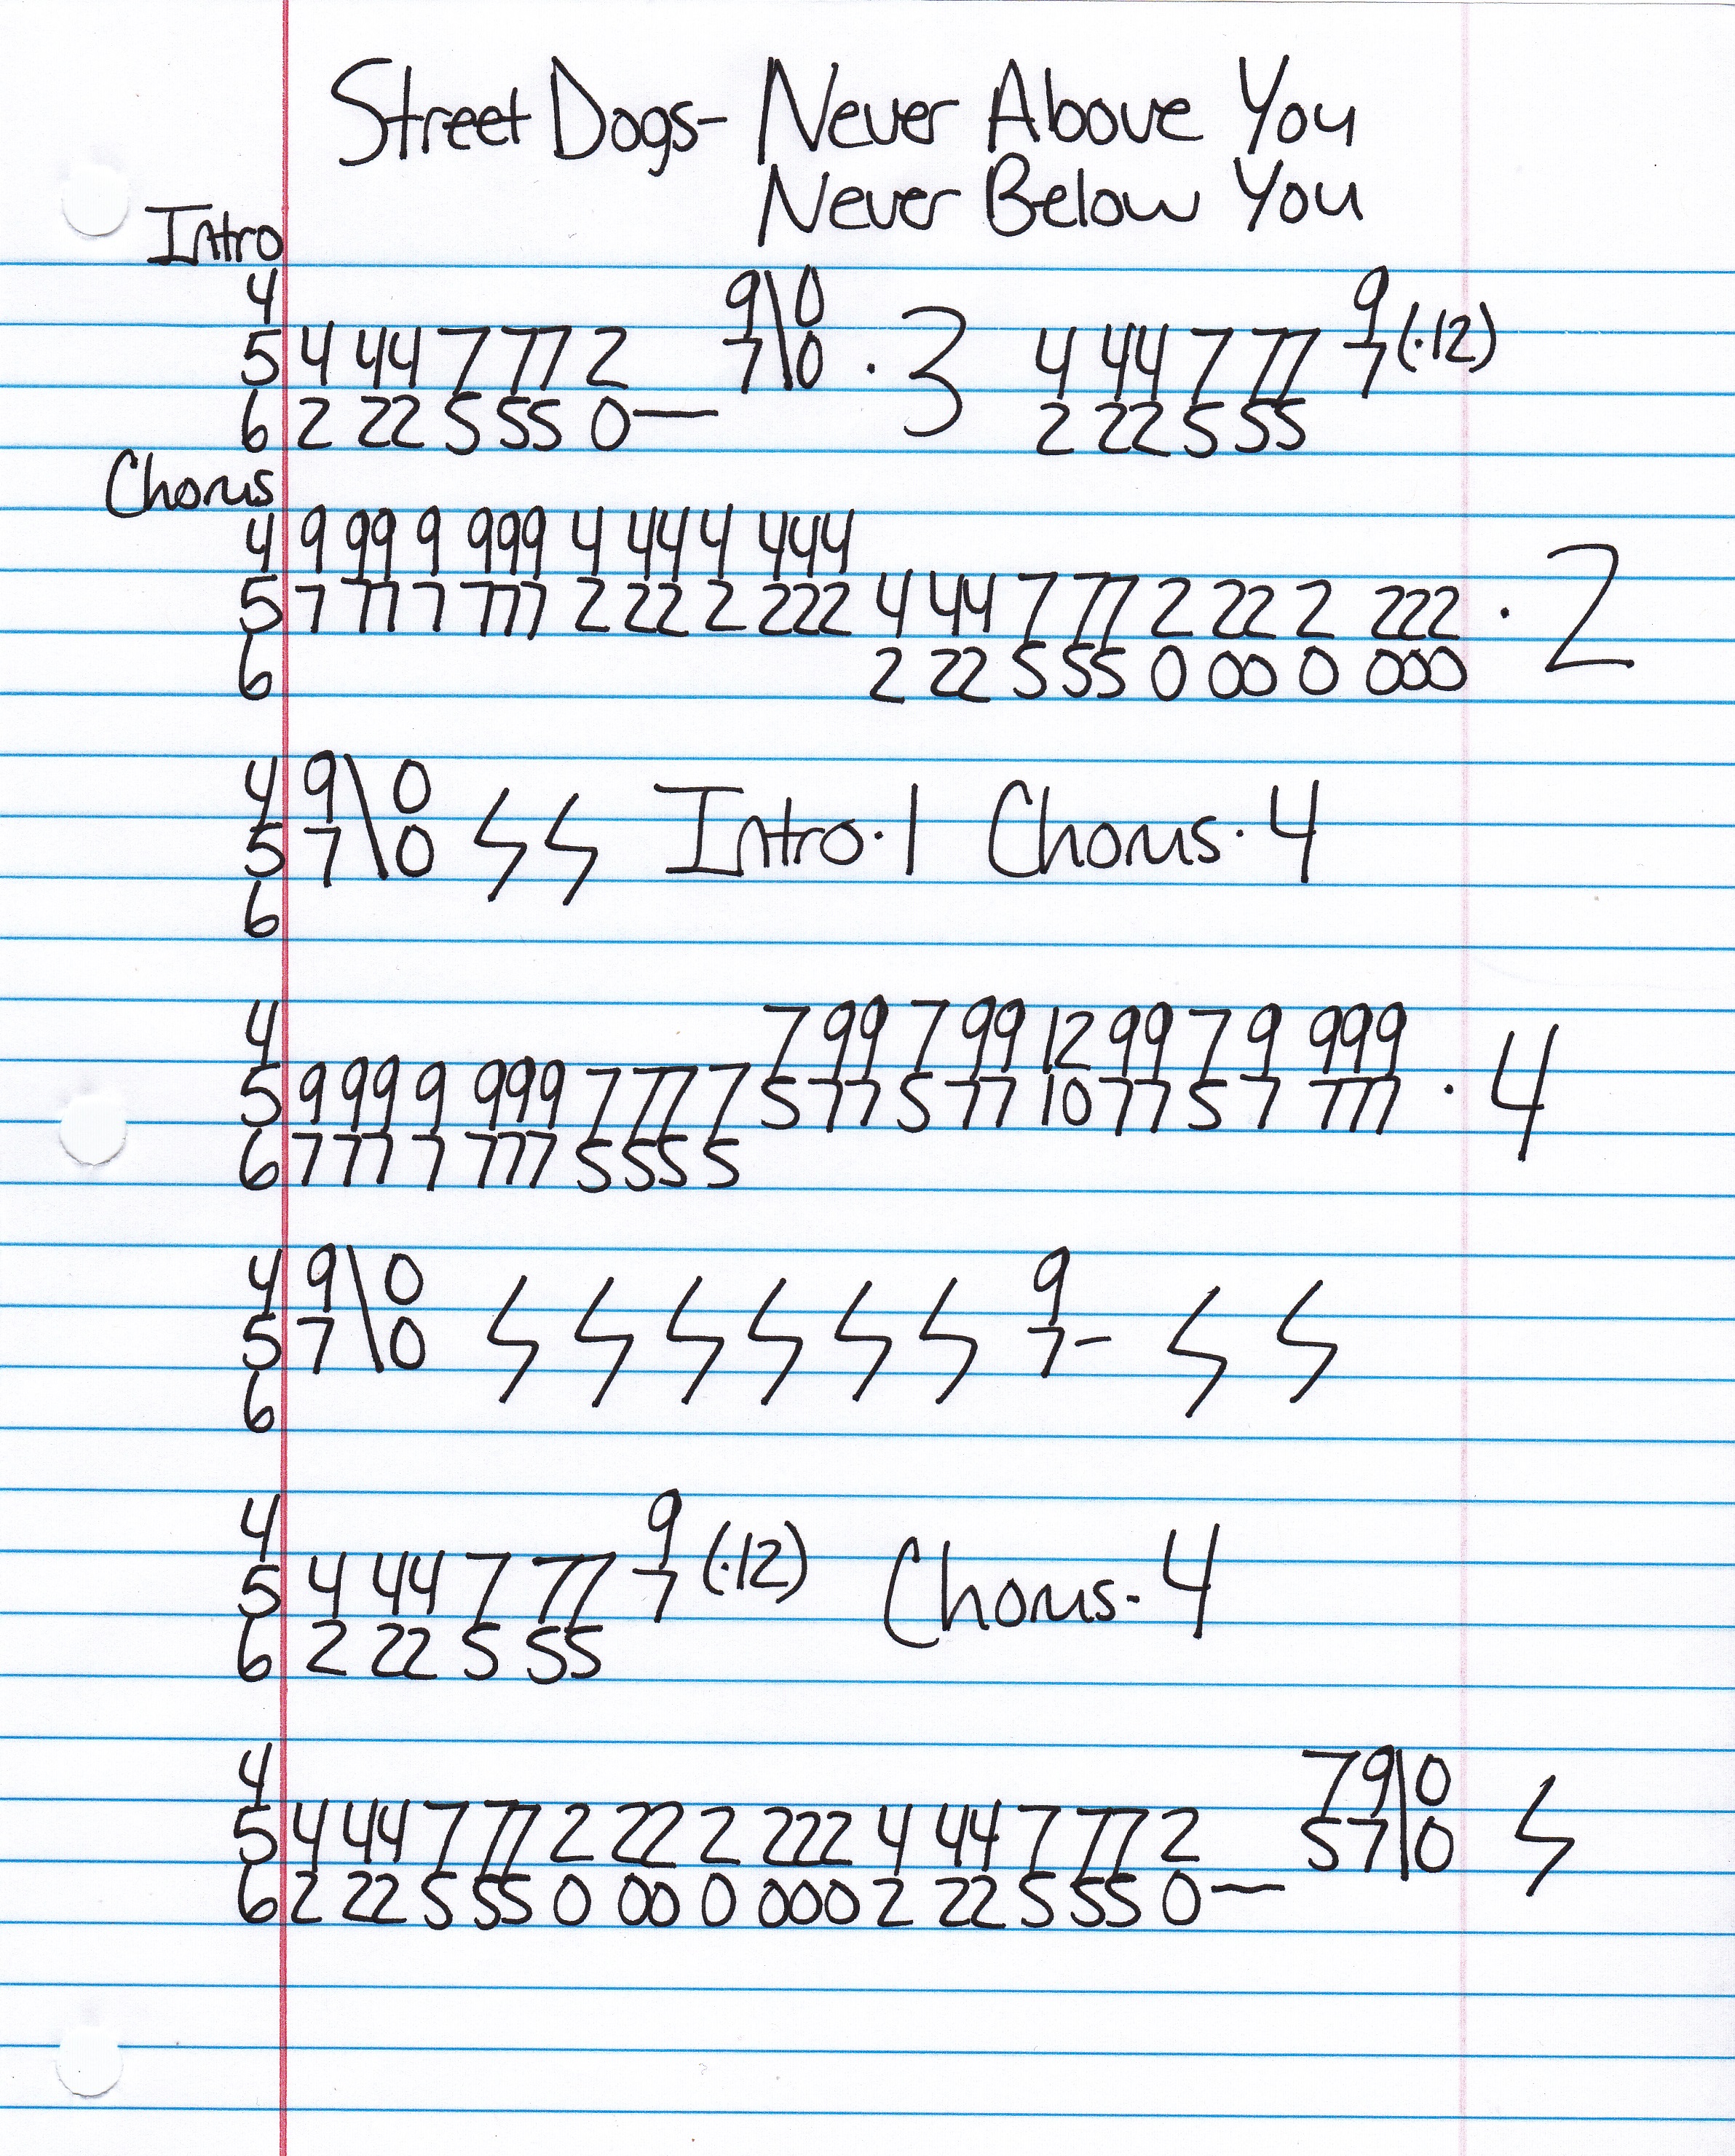 Street Dogs- Never Above You
Never Below You
Intro
4 9\0 9
5 4 44 7 77 2 7\0 · 3 4 44 7 77 7 (·12)
6 2 22 5 55 0— 2 22 5 55
Chorus
4 9 99 9 999 4 444 4 444
5 7 77 7 777 2 222 2 222 4 44 7 77 2 22 2 222 · 2
6 2 22 5 55 0 00 0 000
4 9\0
5 7\0 Intro·1 Chorus·4
6
4 7 99 7 99 12 99 7 9 999
5 9 999 9 999 7 777 5 77 5 77 10 77 5 7 777 · 4
6 7 777 7 777 5 555
4 9\0 9
5 7\0 7-
6
4 9
5 4 44 7 77 7 (·12) Chorus- 4
6 2 22 5 55
4 79|0
5 4 44 7 77 2 22 2 222 4 44 7 77 2 57|0
6 2 22 5 55 0 00 0 000 2 22 5 55 0—